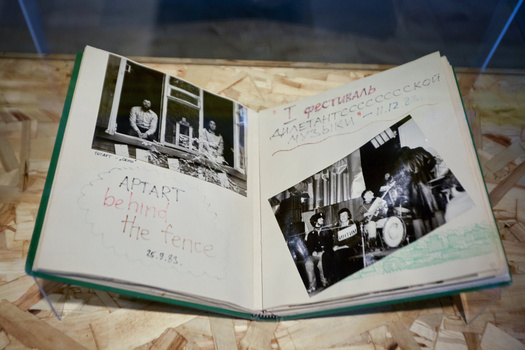 APTART
behind
the fence
25.9.83.
I ФЕСТИВАЛЬ
ДИЛЕТАНТСССССССКОЙ
МУЗЫКИ – 11.12.83.